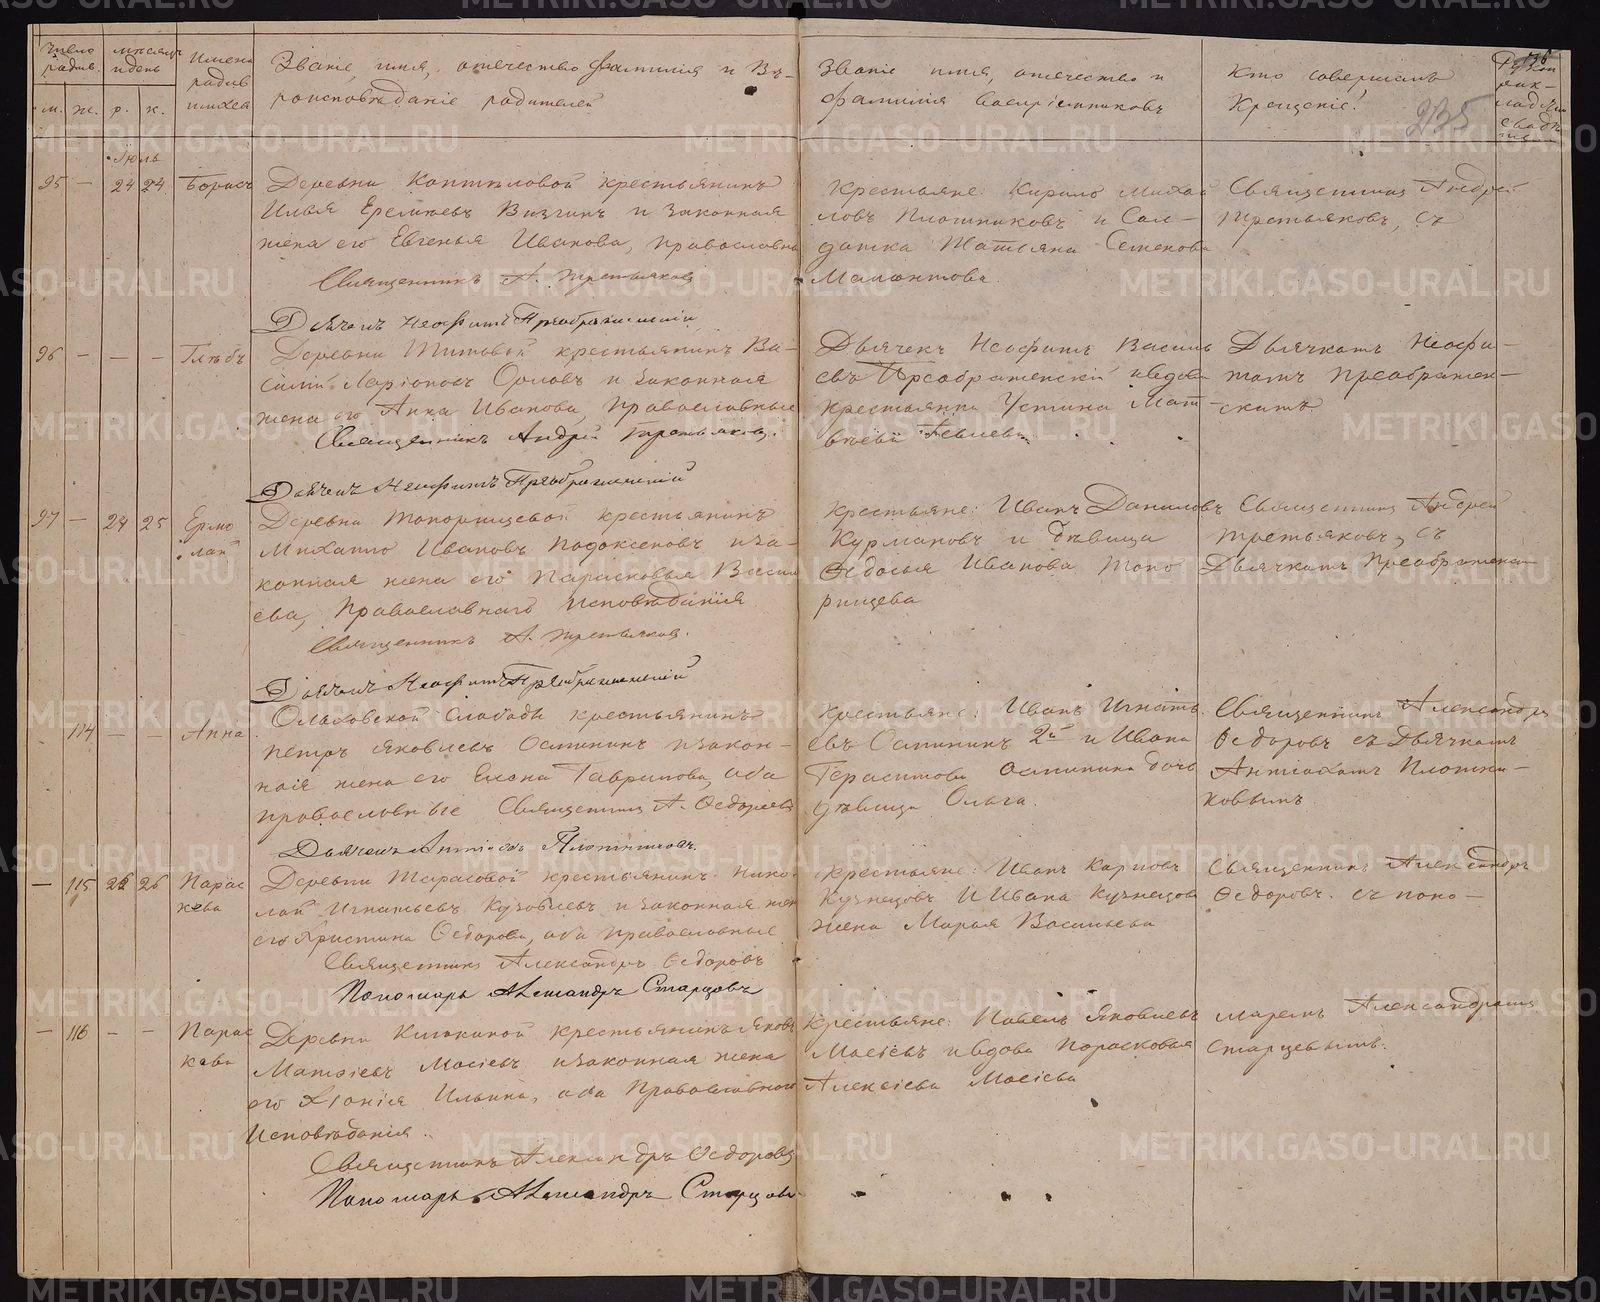 число родив.
месяцъ и день
Имена родив шихся
Званіе, имя, отечество фамилія и Вѣ-
роисповѣданіе родителей
Званіе имя, отечество и
фамилія воспріемниковъ
Кто совершалъ
Крещеніе!
235
м. ж. р. к.
Іюль
95 — 24 24 Борисъ
Деревни Коптяловой крестьянинъ
Илья Еремѣевъ Визгинъ и законная
жена его Евгенья Иванова, православны
Священникъ А. Третьяковъ
Дьячекъ Неофитъ Преображенскій
Крестьяне: Кирило Михай
ловъ Плотниковъ и Сол-
датка Татьяна Семенова
Мамонтова.
Священникъ Андрей
Третьяковъ, съ
96 — — — Глѣбъ
Деревни Титовой крестьянинъ Ва-
силій Ларіоновъ Орловъ и законная
жена его Анна Иванова, православные
Священникъ Андрей Третьяковъ.
Дьячекъ Неофитъ Преображенскій
Дьячекъ Неофитъ Василь
евъ Преображенскій и вдова
крестьянка Устина Мат-
вѣева
Дьячкомъ Неофи-
томъ Преображен-
скимъ
97 — 24 25 Ермо
лай
Деревни Топорищевой крестьянинъ
Михаило Ивановъ Подоксеновъ и за-
конная жена его Парасковья Васил
ева, Православнаго Исповѣданія
Священникъ А. Третьяковъ.
Дьячекъ Неофитъ Преображенскій
Крестьяне: Иванъ Даниловъ
Курмановъ и дѣвица
Ѳедосья Иванова Топо
рищева
Священникъ Андрей
Третьяковъ, съ
Дьячкомъ Преображенски
114 — — Анна
Ольховской Слободы крестьянинъ
Петръ Яковлевъ Осминин и закон-
ная жена его Елена Гаврилова, оба
православные Священникъ А. Ѳедоровъ
Дьячекъ Антіохъ Плотниковъ.
Крестьяне: Иванъ Игнать
евъ Осмининъ 2й и Ивана
Герасимова Осминина дочь
дѣвица Ольга.
Священникъ Александръ
Ѳедоровъ съ Дьячкомъ
Антіохомъ Плотни-
ковымъ
— 115 26 26 Парас
кева
Деревни Тарасовой крестьянинъ Нико-
лай Игнатьевъ Кузовлевъ и законная жен
его Христина Ѳедорова, оба православные
Священникъ Александръ Ѳедоровъ
Пономарь Александръ Старцовъ
Крестьяне: Иванъ Карповъ
Кузнецовъ и Ивана Кузнецова
жена Марья Васильева
Священникъ Александръ
Ѳедоровъ. съ поно-
— 116 — — Парас
кева
Деревни крестьянинъ Яковъ
Матѳіевъ Мосіевъ и законная жена
его Хіонія Ильина, оба Православнаго
Исповѣданія.
Священникъ Александръ Ѳедоровъ
Пономарь Александръ Старцовъ
Крестьяне: Павелъ Яковлевъ
Мосіевъ и вдова Парасковья
Алексіева Мосіева
маремъ Александромъ
Старцевымъ.
METRIKI.GASO-URAL.RU